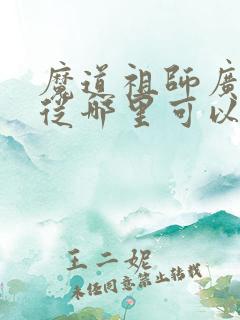 魔道祖師廣
從哪里可以
王二妮
未經同意禁止轉載